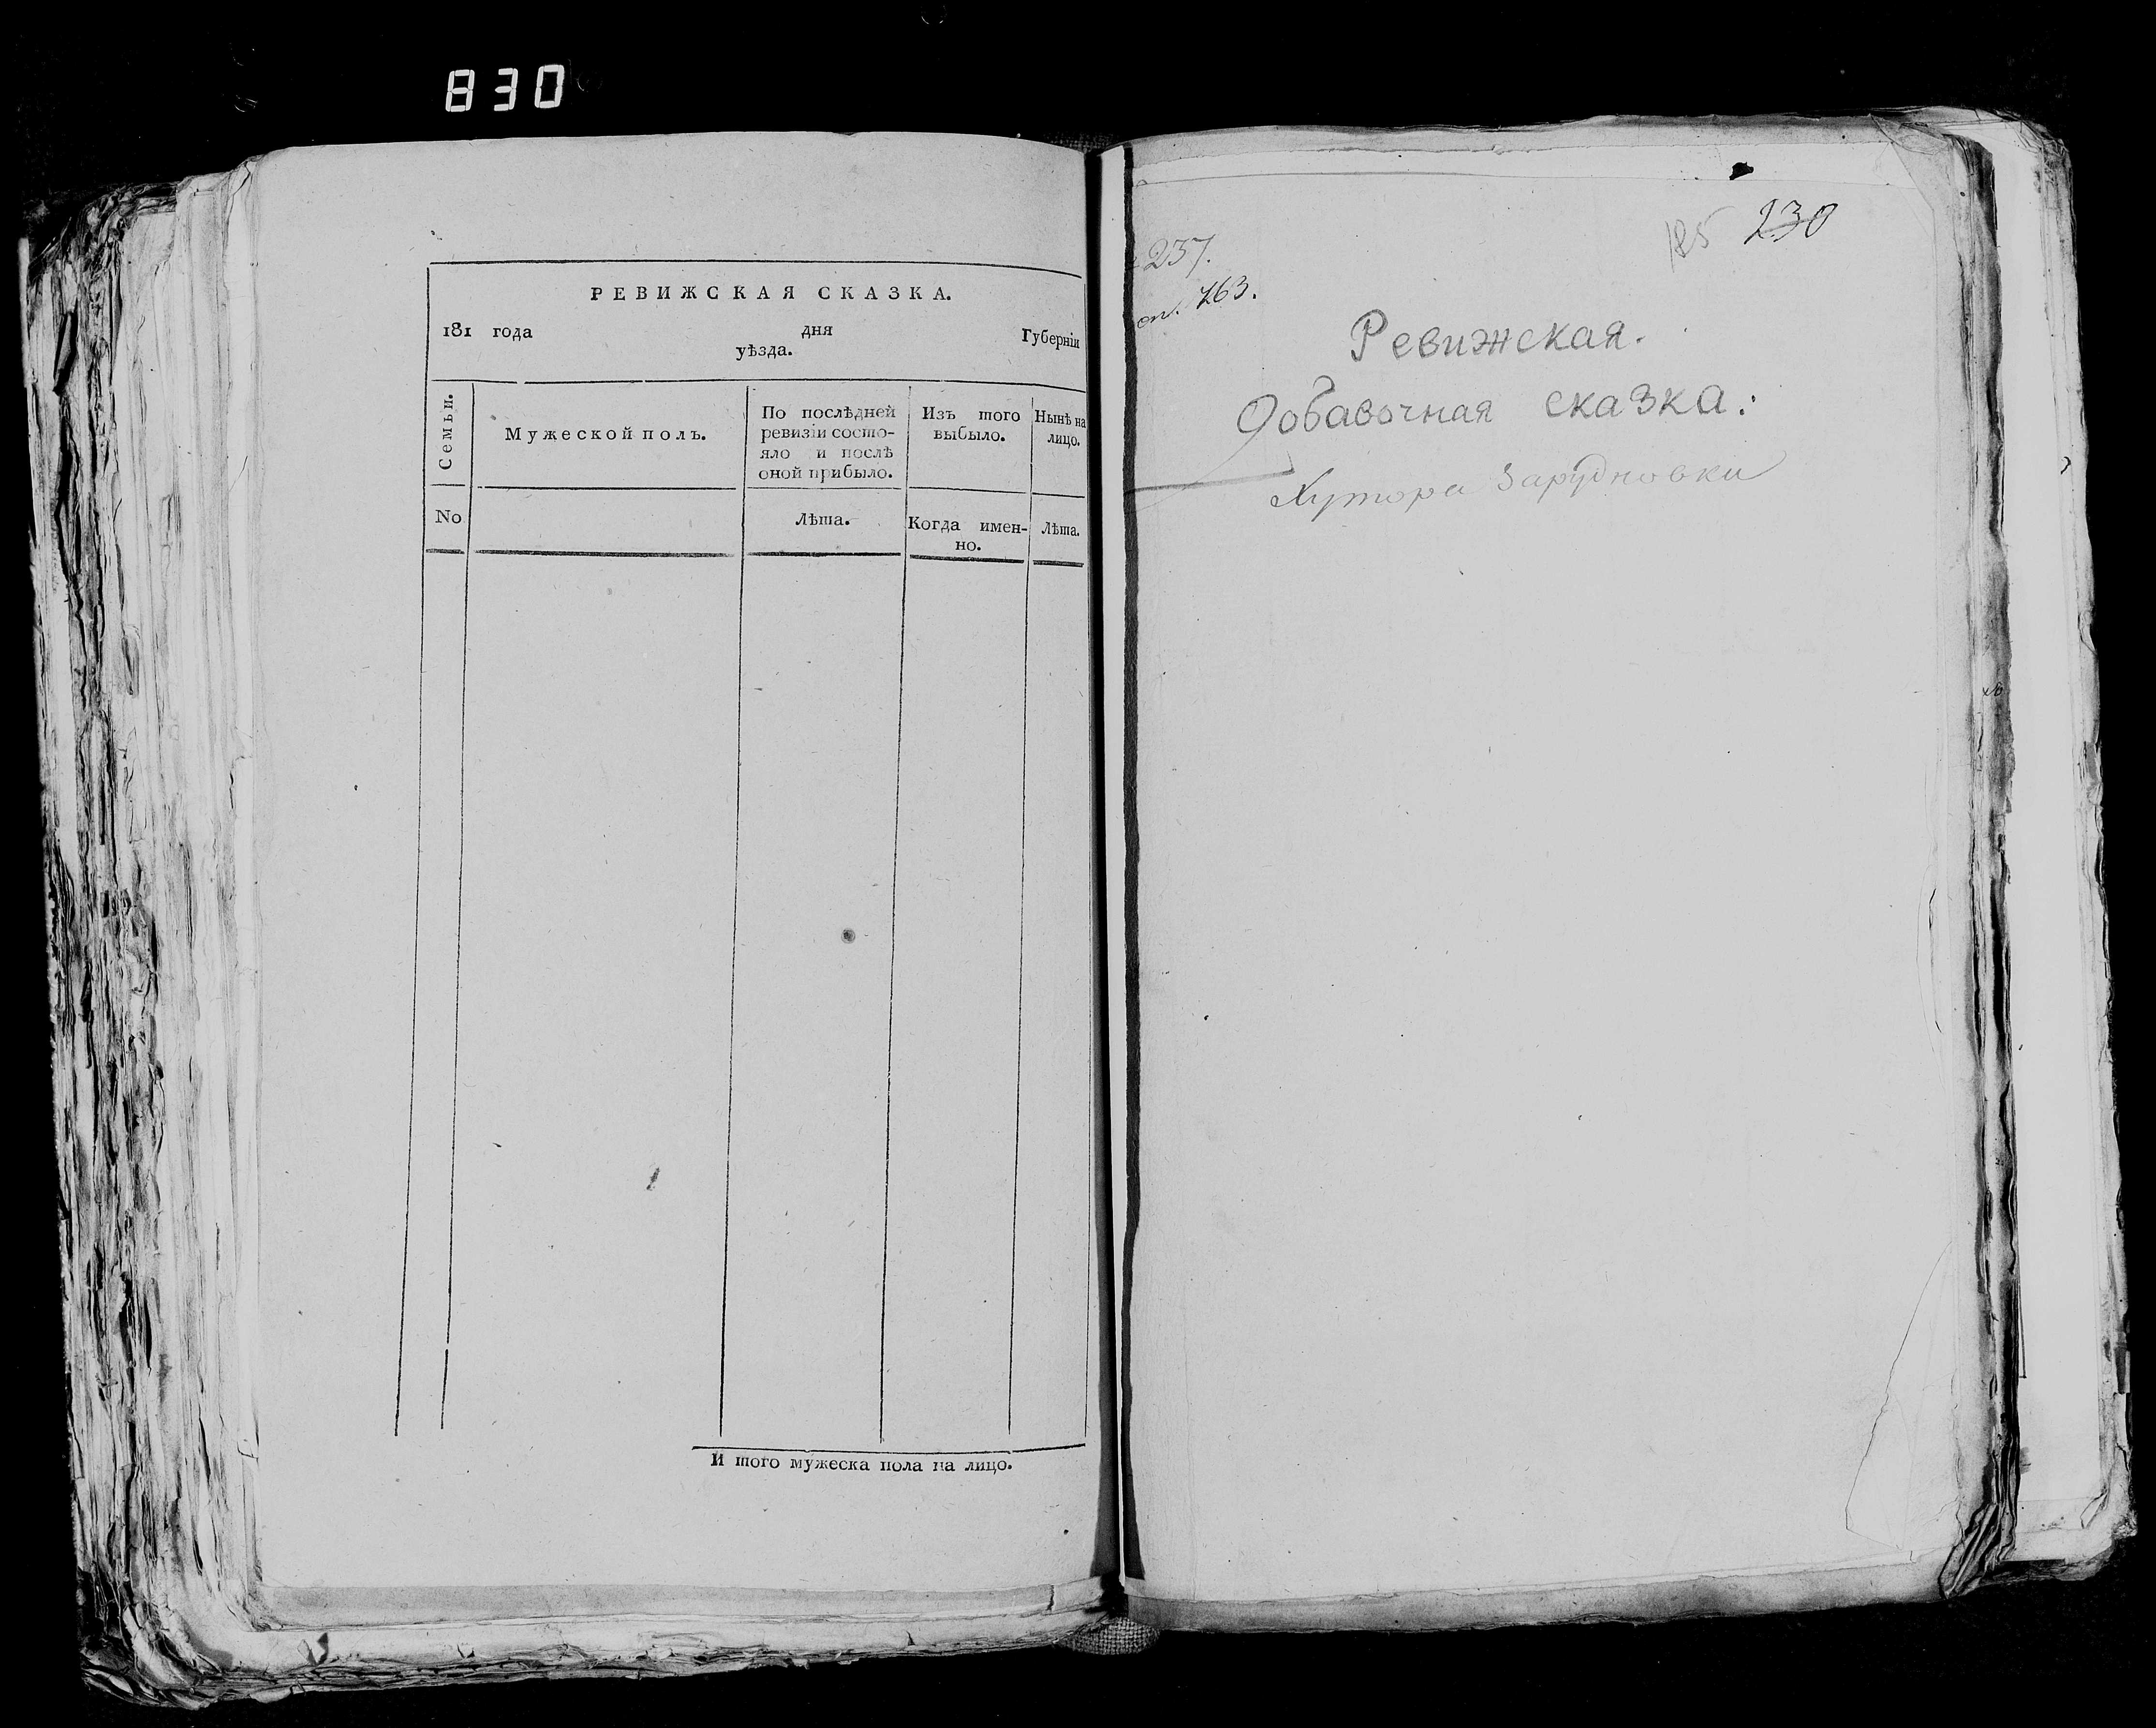 830
РЕВИЖСКАЯ СКАЗКА.
181 года дня Губерніи
уѣзда.
Семьи.
Мужеской полъ.
По послѣдней
ревизіи состо-
яло и послѣ
оной прибыло.
Изъ того
выбыло.
Нынѣ на
лицо.
No
Лѣта.
Когда имен-
но.
Лѣта.
И того мужеска пола на лицо.
237.
763.
185 230
Ревижская.
Добавочная сказка:
Хутора Зарудновки